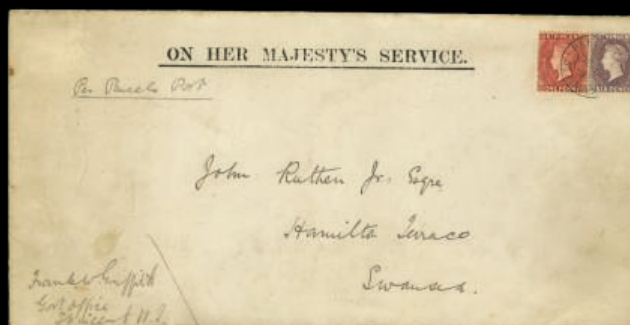 ON HER MAJESTY'S SERVICE.
Per Parcels Post
John Ruthen Jr. Esqre
Hamilto Terrace
Swansea.
Frank W Griffith
Govt office
St Vincent W.I.